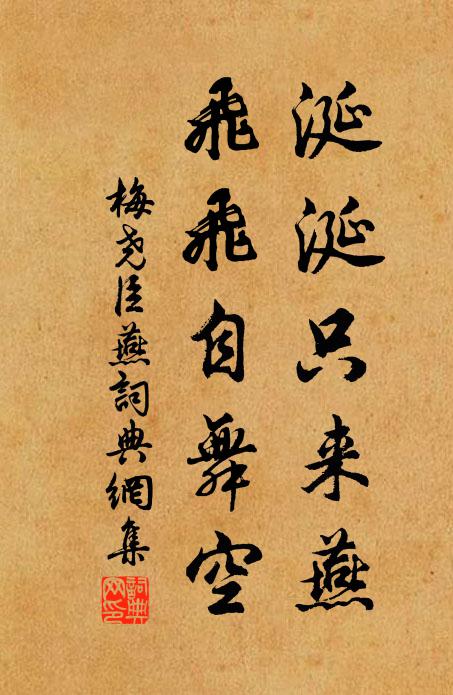 涎涎只来燕
飛飛自舞空
梅堯臣燕詞典網集
詞典
网印